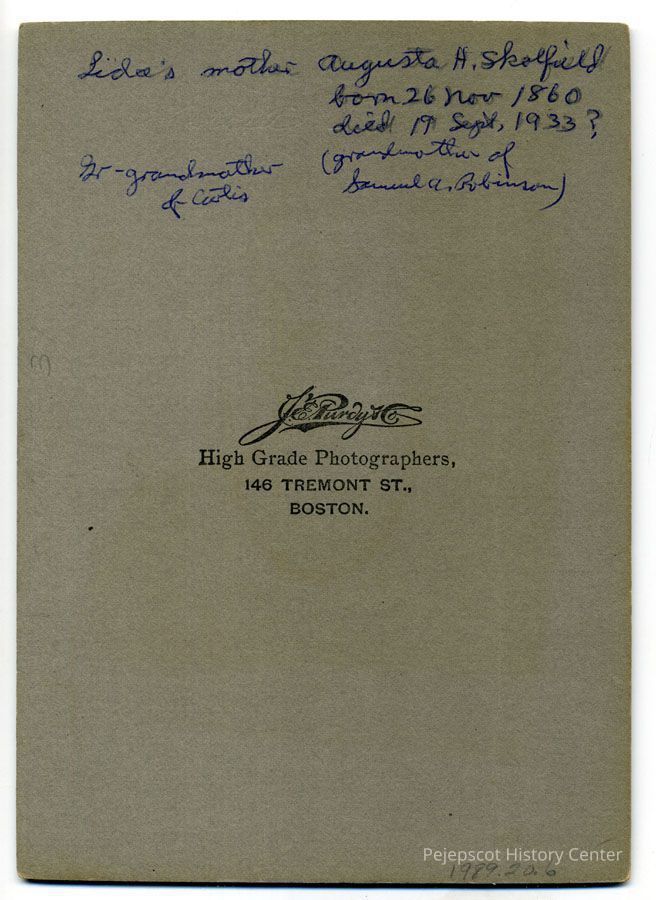 Lida's mother Augusta H. Skolfield
born 26 Nov 1860
died 19 Sept, 1933?
Gr-grandmother (grandmother of
of Curtis Samuel A. Robinson)
3
J.E. Purdy & Co.
High Grade Photographers,
146 TREMONT ST.,
BOSTON.
Pejepscot History Center
1989.20.6